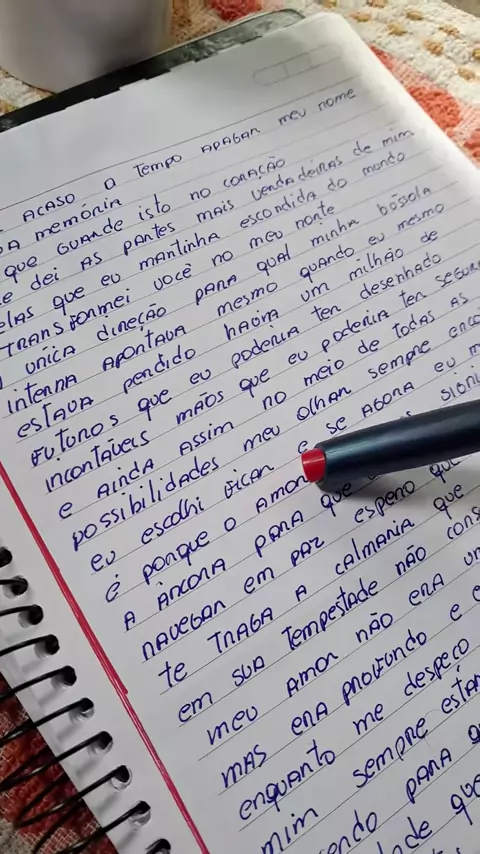 ACASO O TEMPO APAGAR MEU NOME
DA MEMÓRIA
QUE GUARDE ISTO NO CORAÇÃO
TE DEI AS PARTES MAIS VERDADEIRAS DE MIM
ELAS QUE EU MANTINHA ESCONDIDA DO MUNDO
TRANSFORMEI VOCÊ NO MEU NORTE
ÚNICA DIREÇÃO PARA QUAL MINHA BÚSSOLA
INTERNA APONTAVA MESMO QUANDO EU MESMO
ESTAVA PERDIDO HAVIA UM MILHÃO DE
FUTUROS QUE EU PODERIA TER DESENHADO
INCONTÁVEIS MÃOS QUE EU PODERIA TER SEGUR
E AINDA ASSIM NO MEIO DE TODAS AS
POSSIBILIDADES MEU OLHAR SEMPRE ENCO
EU ESCOLHI FICAR E SE AGORA EU M
É PORQUE O AMOR
A ÂNCORA PARA QUE
NAVEGAR EM PAZ ESPERO QUE
TE TRAGA A CALMARIA QUE
EM SUA TEMPESTADE NÃO CONS
MEU AMOR NÃO ERA UM
MAS ERA PROFUNDO E
ENQUANTO ME DESPEÇO
MIM SEMPRE ESTAR
ENDO PARA